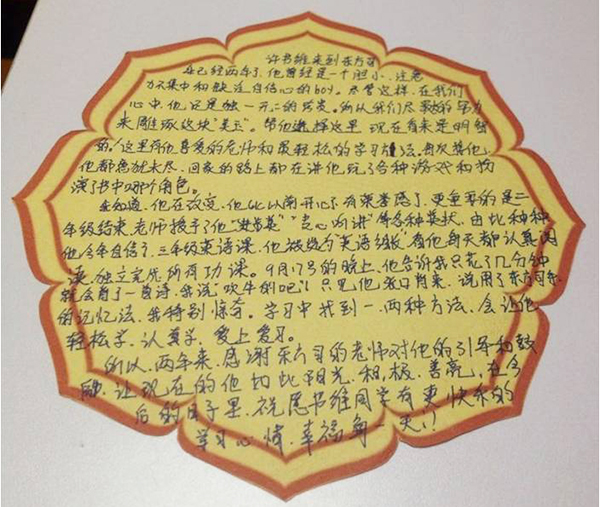 许书维来到东方可
已经两年了,他曾经是一个胆小、注意
力不集中和缺泛自信心的boy。尽管这样,在我们
心中,他还是独一无二的另类。所以我们尽最好的努力
来雕琢这块"美玉"。帮他选择这里,现在看来是明智
的,这里有他喜爱的老师和最轻松的学习方法,每次其他
他都意犹未尽,回家的路上都在讲他玩了各种游戏和扮
演了书中哪个角色。
他在改变,他比以前开心了,有荣誉感了,更重要的是二
年级结束老师授予了他"进步奖""专心听讲"等各种奖状,由此种种
他今年自信了,三年级英语课,他被选为"英语组长",看他每天都认真阅
读,独立完成所有功课。9月17号的晚上,他告诉我只花了几分钟
就会背了一首诗,我说"吹牛的吧!"只见他张口背来,说用了东方可
的记忆法,我特别惊奇。学习中找到一、两种方法,会让他
轻松学、认真学、爱上学习。
所以,两年来,感谢东方可的老师对他的引导和鼓
励,让现在的他如此阳光,积极,善言,在今
后的日子里,祝愿书维同学有更快乐的
学习心情,幸福每一天!